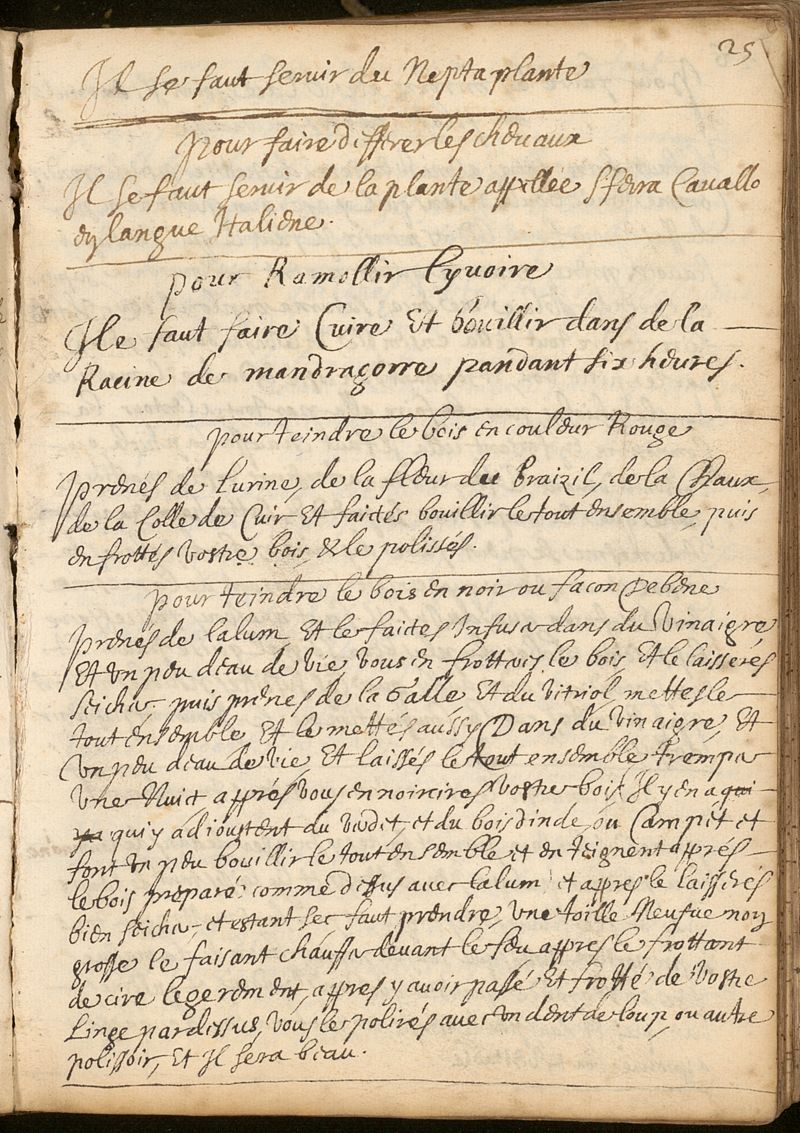 25
Il se faut seruir du Nepta plante
pour faire differer les cheuaux
Il se faut seruir de la plante appellée Sferra Cauallo
en langue Italiene.
pour Ramollir lyuoire
Il le faut faire Cuire Et bouillir dans de la
Racine de mandragorre pandant six heures.
pour teindre le bois en couleur Rouge
prenés de lurine, de la fleur du braizil, de la Chaux,
de la Colle de Cuir Et faictés bouillir le tout ensemble, puis
en frottés vostre bois, & le polissés.
pour teindre le bois en noir ou facon Debene
prenés de lalum Et le faites Infuser dans du Vinaigre
Et vn peu deau de vie vous en frotterés le bois, Et le laisserés
seicher puis prenes de la Galle, Et du vitriol mettes le
tout ensemble, Et le mettés aussy Dans du vinaigre, Et
vn peu deau de vie, Et laissés le tout ensemble tremper
vne Nuict, apprés vous en noircires vostre bois, Il y en a qui
ya qui y adioustent du verdet, et du bois dinde, ou Campét et
font vn peu bouillir le tout ensemble et en teignent apprés
le bois preparé comme dessus auec lalum et appres le laisserés
bien seicher, et estant sec faut prendre, vne toille Neufue non
grosse le faisant chauffer deuant le feu appres le frottant
de cire legerement, appres y auoir passé Et frotté de vostre
Linge par dessus, vous le polirés auec vn dent de loup, ou autre
polissoir, Et Il sera beau.